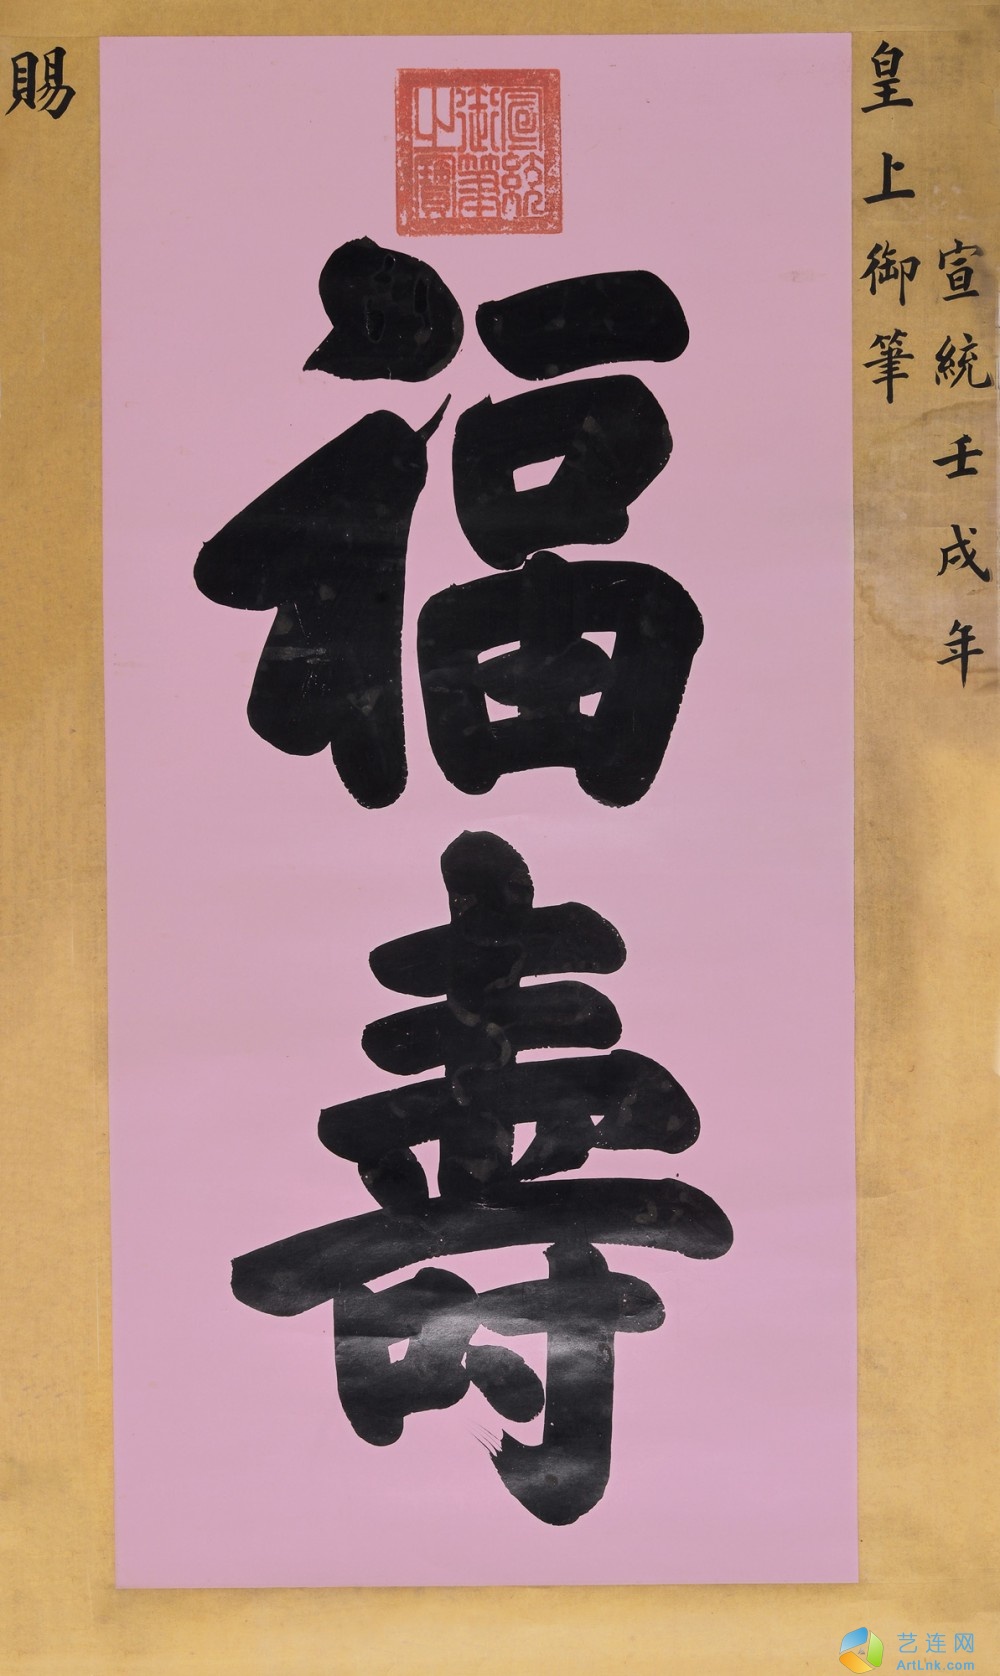 宣統壬戌年
皇上御筆
宣統
御筆
之寶
福壽
賜
艺连网
ArtLnk.com